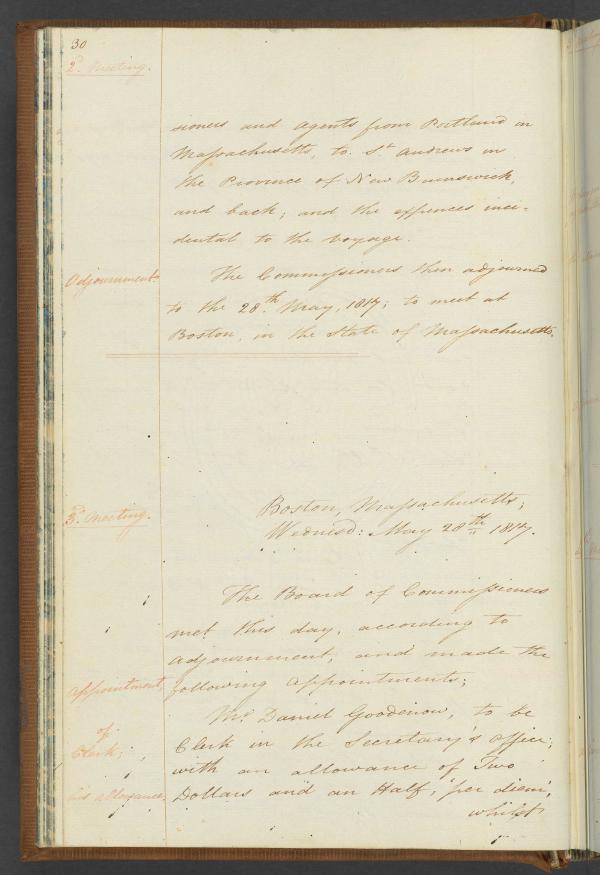 30
2ᵈ. Meeting.
sioners and Agents from Portland in
Massachusetts, to Sᵗ Andrews in
the Province of New Brunswick,
and back; and the expences inci-
dental to the voyage.
Adjournment.
The Commissioners then adjourned
to the 28ᵗʰ May, 1817; to meet at
Boston, in the State of Massachusetts.
3ᵈ. Meeting.
Boston, Massachusetts;
Wednesd: May 28ᵗʰ 1817.
The Board of Commissioners
met this day, according to
adjournment, and made the
following appointments;
Appointment,
of
Clerk;
his allowance.
Mʳ Daniel Goodenow, to be
Clerk in the Secretary's office;
with an allowance of Two
Dollars and an Half, per diem,
whilst